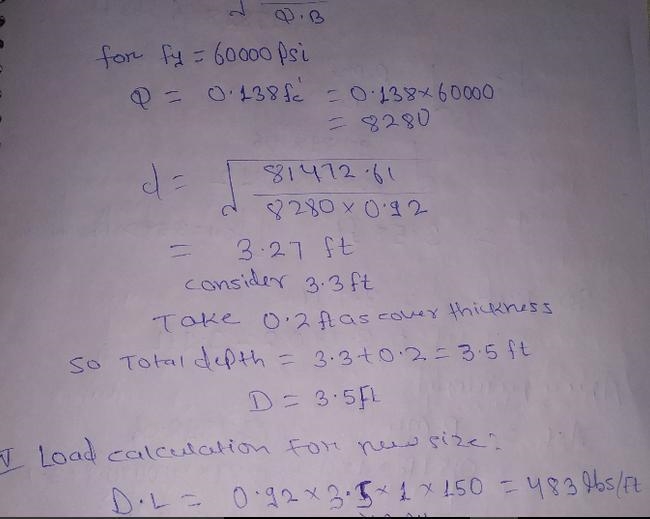 √ Q.B
for fy = 60000 psi
Q = 0.138fc' = 0.138×60000
= 8280
d = √ 81472.61
8280 × 0.92
= 3.27 ft
consider 3.3ft
Take 0.2 ft as cover thickness
So Total depth = 3.3+0.2 = 3.5 ft
D = 3.5ft
V Load calculation for new size:
D.L = 0.92 × 3.5 × 1 × 150 = 483 lbs/ft